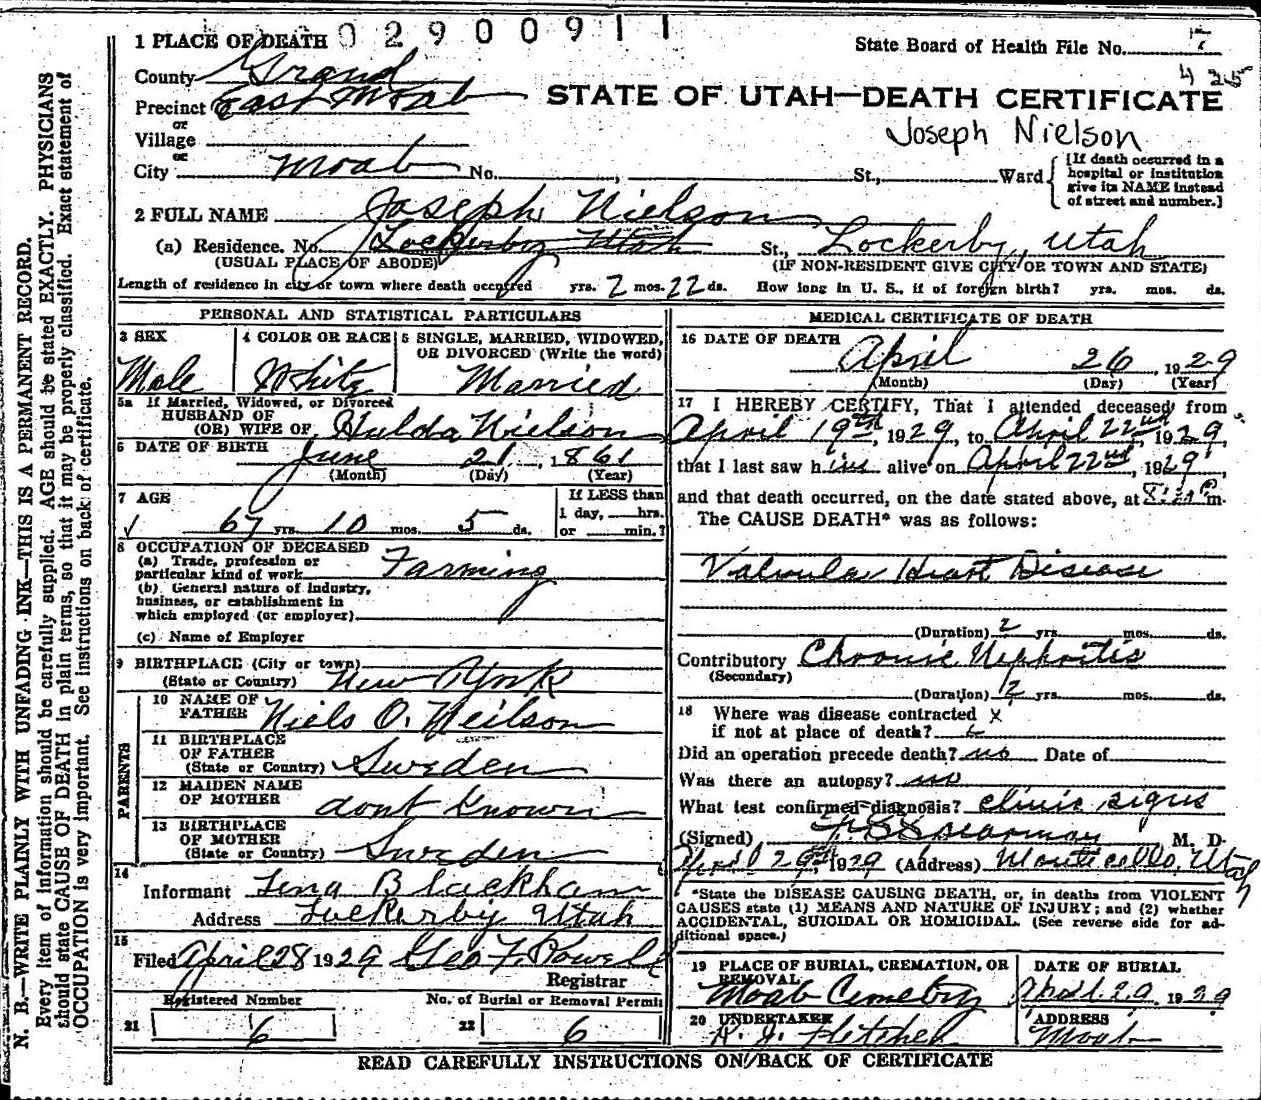 02900911
1 PLACE OF DEATH
State Board of Health File No. 7
County Grand
4 25
Precinct East Moab
STATE OF UTAH—DEATH CERTIFICATE
or
Village
Joseph Nielson
or
City Moab No. , St., Ward
[If death occurred in a hospital or institution give its NAME instead of street and number.]
2 FULL NAME Joseph Nielson
(a) Residence. No. Lockerby Utah St., Lockerby, Utah
(USUAL PLACE OF ABODE) (IF NON-RESIDENT GIVE CITY OR TOWN AND STATE)
Length of residence in city or town where death occurred yrs. 2 mos. 22 ds. How long in U. S., if of foreign birth? yrs. mos. ds.
PERSONAL AND STATISTICAL PARTICULARS
3 SEX
Male
4 COLOR OR RACE
White
5 SINGLE, MARRIED, WIDOWED,
OR DIVORCED (Write the word)
Married
5a If Married, Widowed, or Divorced
HUSBAND OF
(OR) WIFE OF Hulda Nielson
6 DATE OF BIRTH
June 21, 1861
(Month) (Day) (Year)
7 AGE
67 yrs. 10 mos. 5 ds.
If LESS than
1 day, hrs.
or min.?
8 OCCUPATION OF DECEASED
(a) Trade, profession or
particular kind of work Farming
(b) General nature of industry,
business, or establishment in
which employed (or employer)
(c) Name of Employer
9 BIRTHPLACE (City or town)
(State or Country) New York
PARENTS
10 NAME OF
FATHER Niels O. Neilson
11 BIRTHPLACE
OF FATHER
(State or Country) Sweden
12 MAIDEN NAME
OF MOTHER dont Known
13 BIRTHPLACE
OF MOTHER
(State or Country) Sweden
14
Informant Lena Blackham
Address Lockerby Utah
15
Filed April 28 1929 Geo F. Powell
Registrar
Registered Number
21 6
No. of Burial or Removal Permit
22 6
MEDICAL CERTIFICATE OF DEATH
16 DATE OF DEATH
April 26, 1929
(Month) (Day) (Year)
17 I HEREBY CERTIFY, That I attended deceased from
April 19th, 1929, to April 22nd, 1929,
that I last saw him alive on April 22nd, 1929,
and that death occurred, on the date stated above, at P m.
The CAUSE DEATH* was as follows:
Valvular Heart Disease
(Duration) 2 yrs. mos. ds.
Contributory Chronic Nephritis
(Secondary)
(Duration) 2 yrs. mos. ds.
18 Where was disease contracted x
if not at place of death?
Did an operation precede death? no Date of
Was there an autopsy? no
What test confirmed diagnosis? clinic signs
(Signed) Spearman M. D.
April 29th, 1929 (Address) Monticello, Utah
*State the DISEASE CAUSING DEATH, or, in deaths from VIOLENT
CAUSES state (1) MEANS AND NATURE OF INJURY; and (2) whether
ACCIDENTAL, SUICIDAL OR HOMICIDAL. (See reverse side for ad-
ditional space.)
19 PLACE OF BURIAL, CREMATION, OR
REMOVAL
Moab Cemetry
DATE OF BURIAL
April 29, 1929
20 UNDERTAKER
R. J. Fletcher
ADDRESS
Moab
READ CAREFULLY INSTRUCTIONS ON BACK OF CERTIFICATE
N. B.—WRITE PLAINLY WITH UNFADING INK—THIS IS A PERMANENT RECORD.
Every item of information should be carefully supplied. AGE should be stated EXACTLY. PHYSICIANS
should state CAUSE OF DEATH in plain terms, so that it may be properly classified. Exact statement of
OCCUPATION is very important. See instructions on back of certificate.